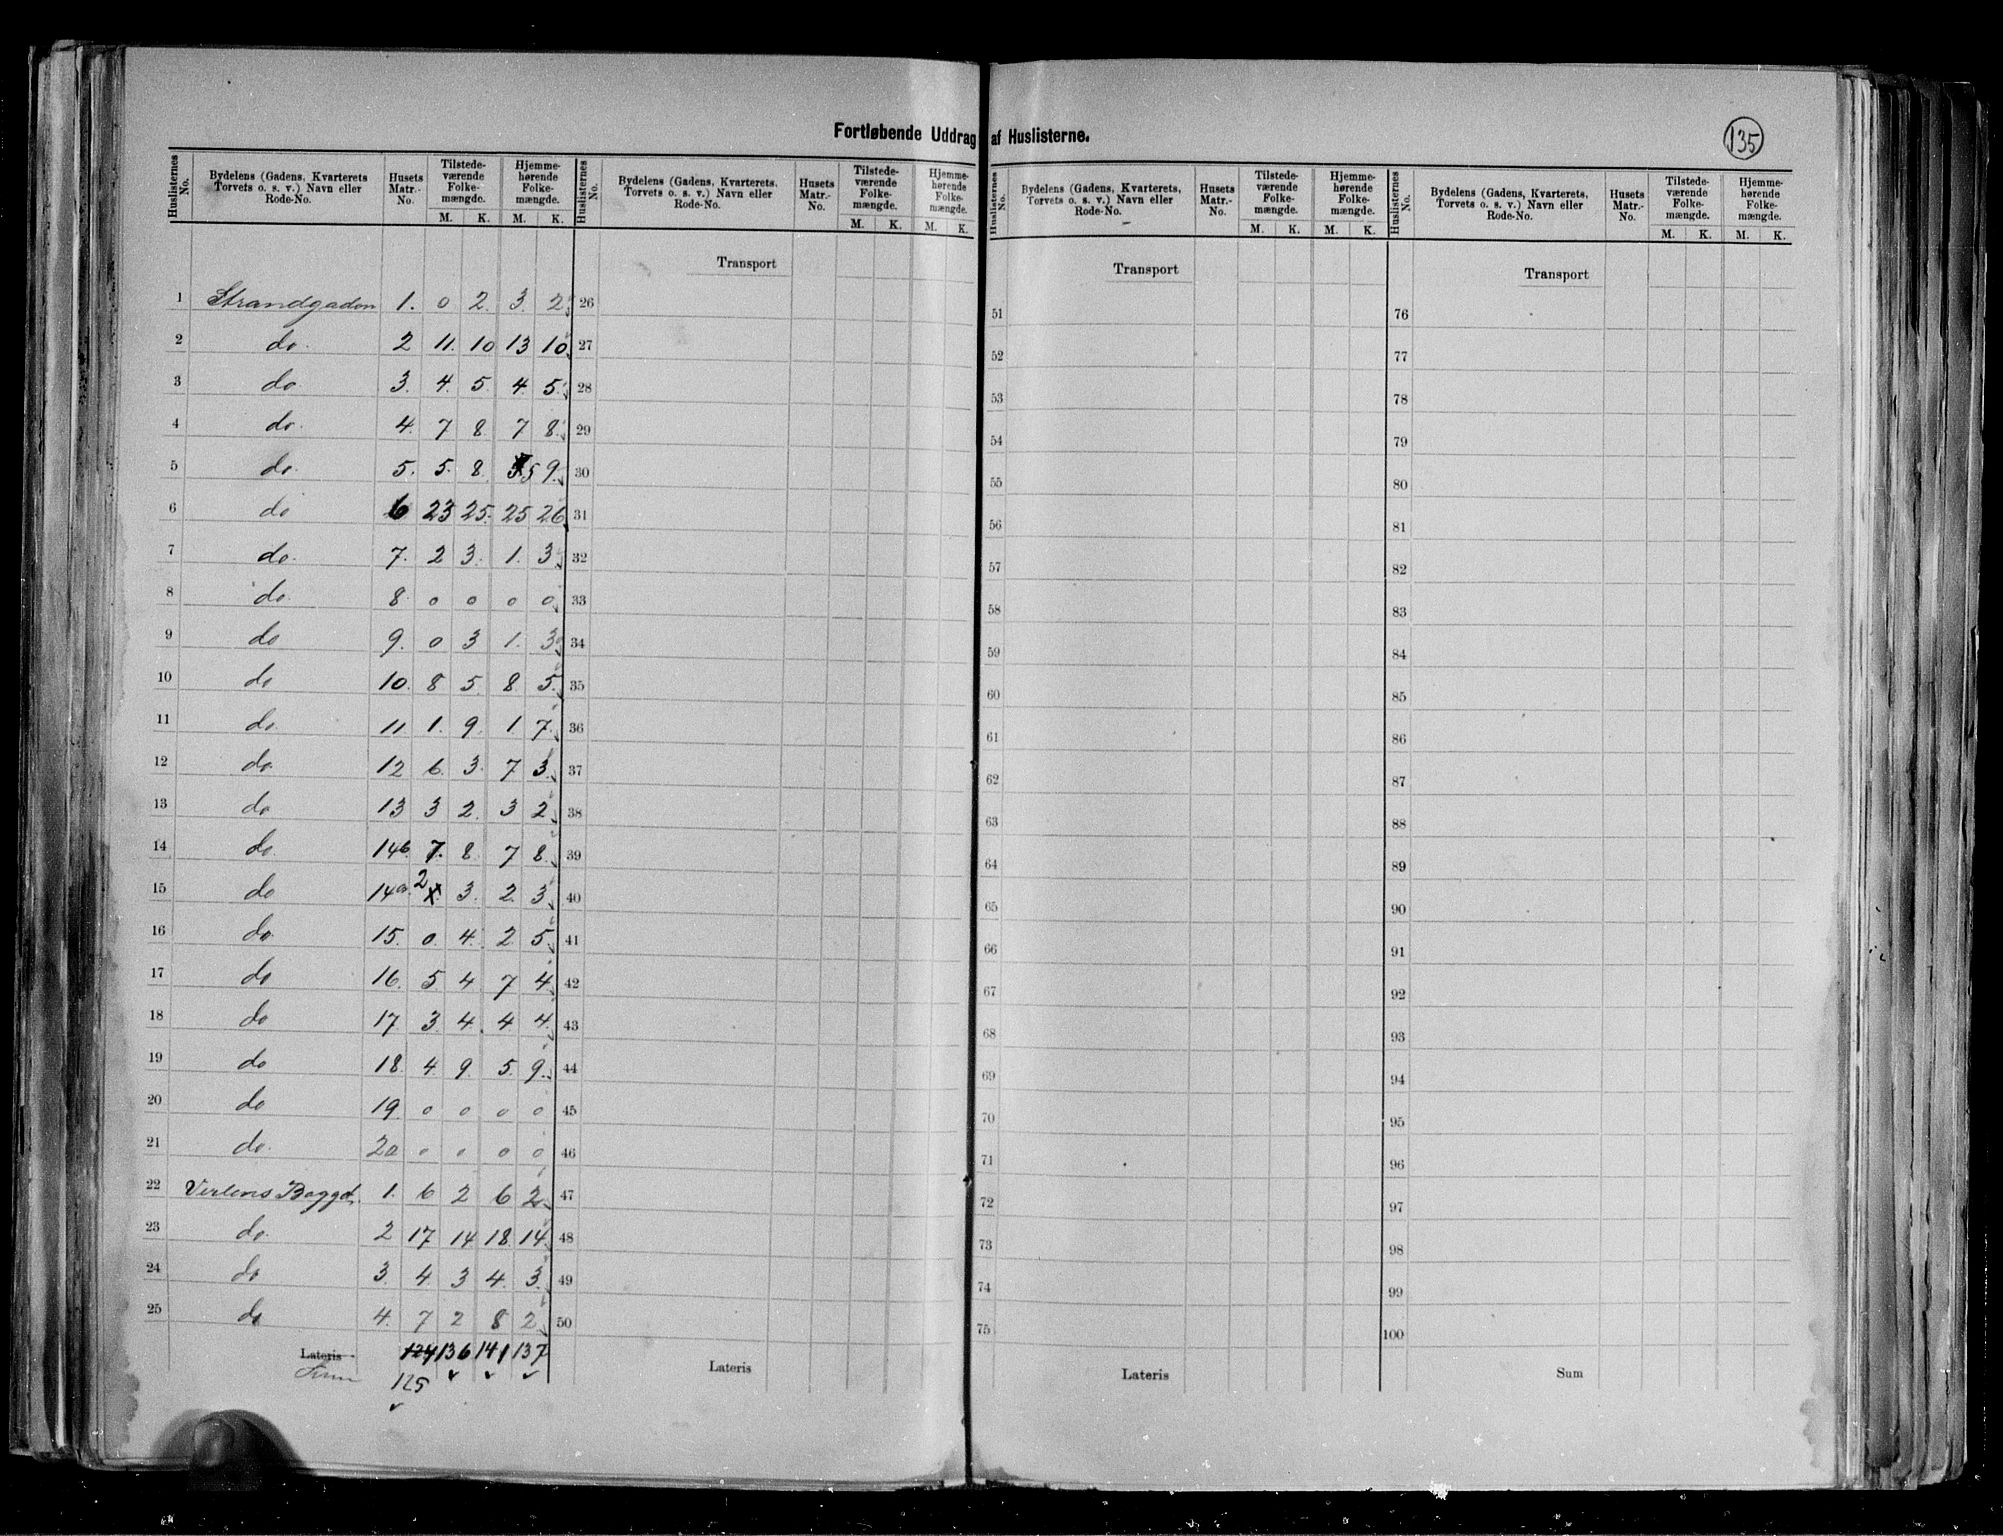 Fortløbende Uddrag af Huslisterne.
135
Huslisternes No. | Bydelens (Gadens, Kvarterets Torvets o. s. v.) Navn eller Rode-No. | Husets Matr.-No. | Tilstedeværende Folkemængde. M. K. | Hjemmehørende Folkemængde. M. K.
Huslisternes No. | Bydelens (Gadens, Kvarterets, Torvets o. s. v.) Navn eller Rode-No. | Husets Matr.-No. | Tilstedeværende Folkemængde. M. K. | Hjemmehørende Folkemængde. M. K.
Huslisternes No. | Bydelens (Gadens, Kvarterets, Torvets o. s. v.) Navn eller Rode-No. | Husets Matr.-No. | Tilstedeværende Folkemængde. M. K. | Hjemmehørende Folkemængde. M. K.
Huslisternes No. | Bydelens (Gadens, Kvarterets, Torvets o. s. v.) Navn eller Rode-No. | Husets Matr.-No. | Tilstedeværende Folkemængde. M. K. | Hjemmehørende Folkemængde. M. K.
Transport Transport Transport
1 Strandgaden 1. 0 2 3 2 26 51 76
2 do. 2 11. 10 13 10 27 52 77
3 do 3. 4. 5. 4. 5. 28 53 78
4 do. 4. 7 8 7 8 29 54 79
5 do. 5. 5. 8. 5 9. 30 55 80
6 do 6 23 25. 25 26 31 56 81
7 do. 7. 2 3. 1. 3 32 57 82
8 do. 8 0 0 0 0 33 58 83
9 do 9. 0 3 1. 3 34 59 84
10 do 10. 8 5. 8 5. 35 60 85
11 do 11 1. 9. 1 7. 36 61 86
12 do 12 6. 3. 7 3. 37 62 87
13 do 13 3 2. 3 2. 38 63 88
14 do. 14b. 7. 8. 7 8. 39 64 89
15 do 14a. 2 3. 2 3 40 65 90
16 do 15. 0. 4. 2 5. 41 66 91
17 do 16. 5 4 7 4. 42 67 92
18 do 17 3 4. 4 4. 43 68 93
19 do 18. 4. 9. 5. 9. 44 69 94
20 do 19. 0 0 0 0 45 70 95
21 do. 20 0 0 0 0 46 71 96
22 Baggd. 1. 6 2 6 2 47 72 97
23 do. 2 17 14 18 14. 48 73 98
24 do 3. 4 3 4. 3. 49 74 99
25 do 4. 7 2 8 2 50 75 100
Lateris 124 136 141 137 Lateris Lateris Sum
Sum 125